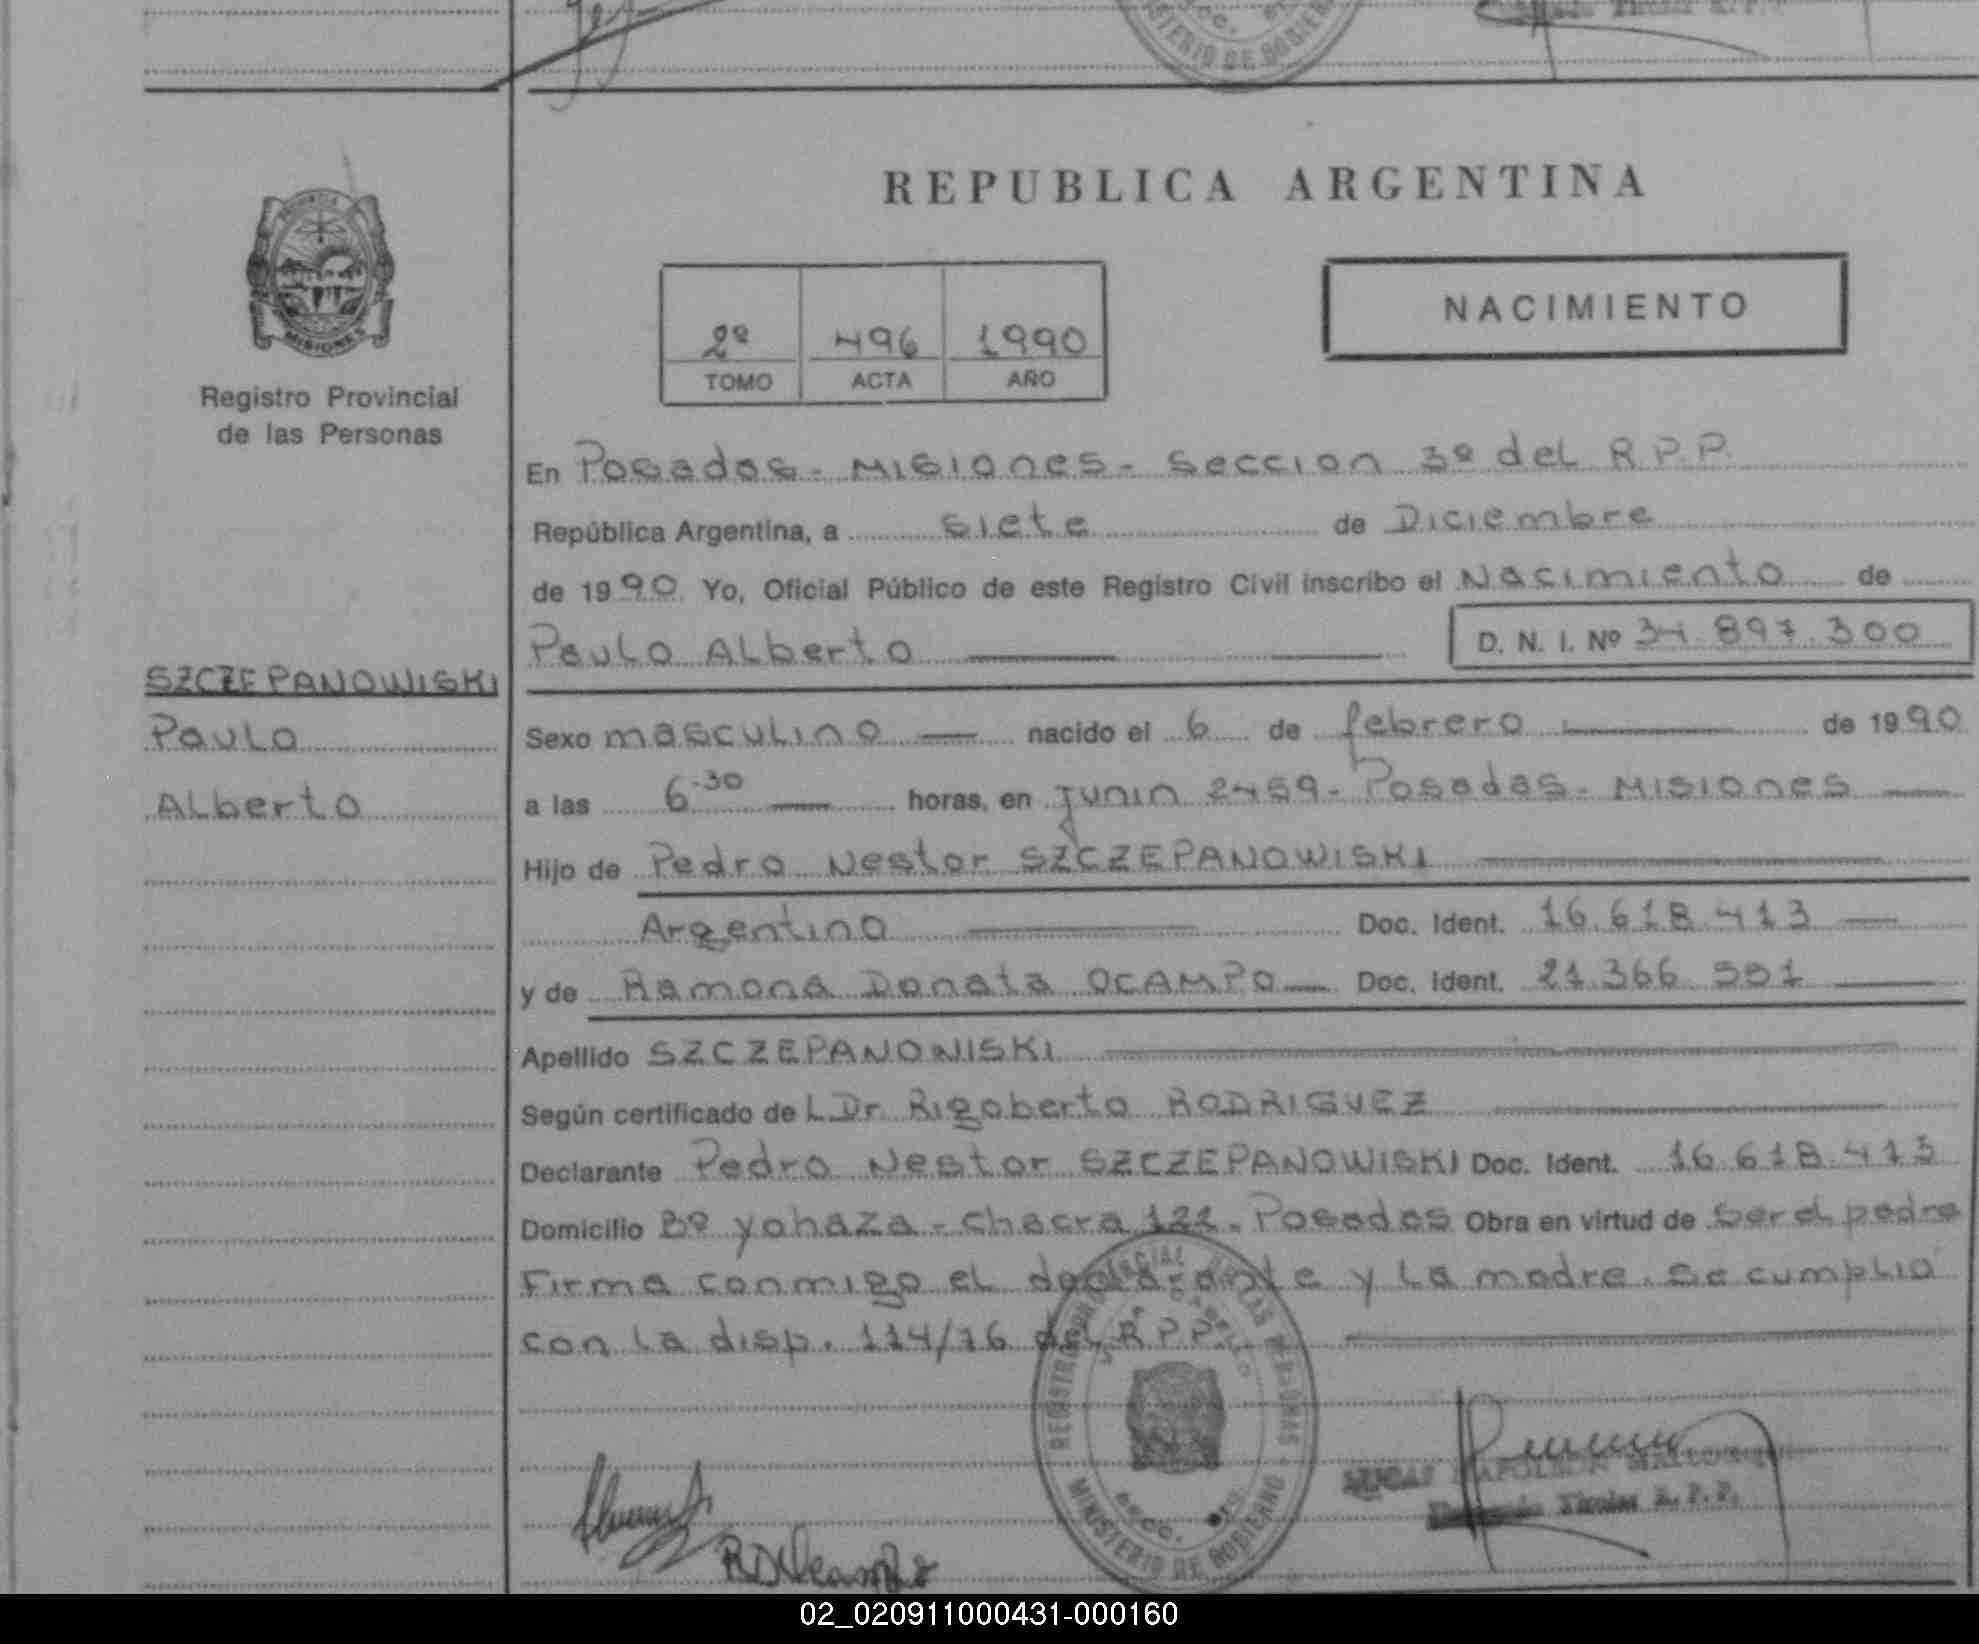 REPUBLICA ARGENTINA
2º 496 1990
TOMO ACTA AÑO
NACIMIENTO
MISIONES
Registro Provincial
de las Personas
En Posadas - Misiones - Seccion 3º del R.P.P.
República Argentina, a siete de Diciembre
de 1990 Yo, Oficial Público de este Registro Civil inscribo el Nacimiento de
Paulo Alberto D. N. I. Nº 34.897.300
SZCZEPANOWISKI
Paulo
Alberto
Sexo masculino nacido el 6 de febrero de 1990
a las 6.30 horas, en Junin 2459 - Posadas - Misiones
Hijo de Pedro Nestor SZCZEPANOWISKI
Argentino Doc. Ident. 16.618.413
y de Ramona Donata OCAMPO Doc. Ident. 21.366.551
Apellido SZCZEPANOWISKI
Según certificado del Dr. Rigoberto RODRIGUEZ
Declarante Pedro Nestor SZCZEPANOWISKI Doc. Ident. 16.618.413
Domicilio Bº yohaza - chacra 121 - Posadas Obra en virtud de ser el padre
Firma conmigo el declarante y la madre. Se cumplio
con la disp. 114/76 del R.P.P.
MINISTERIO DE GOBIERNO
Titular R.P.P.
RDOcampo
02_020911000431-000160